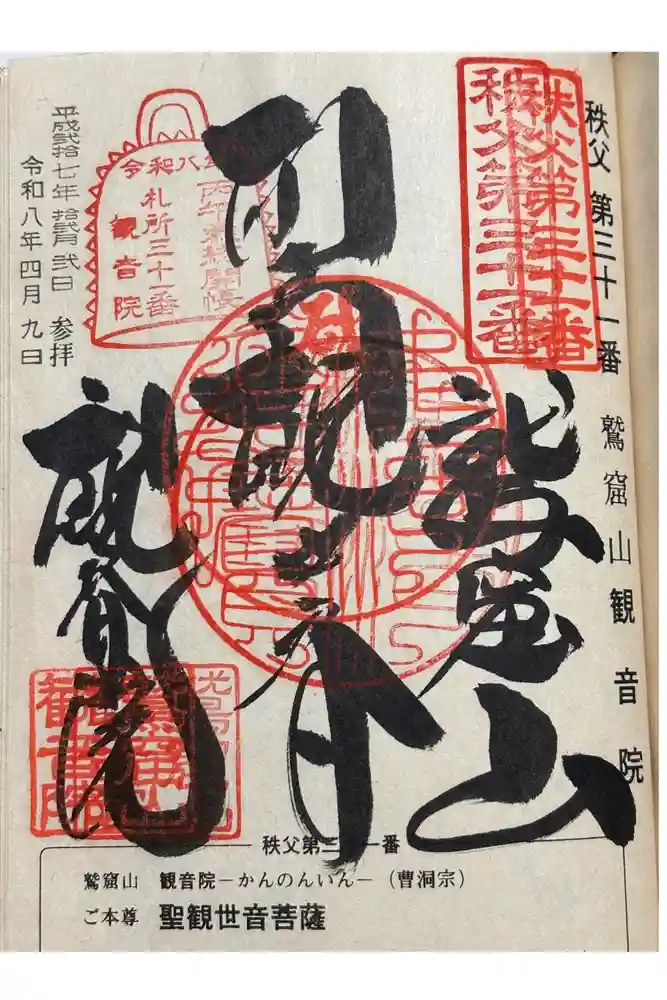 秩父 第三十一番 鷲窟山観音院
秩父第三十一番
秩父第三十一番
鷲窟山
聖観世音
観音院
令和八年
丙午
開帳
札所三十一番
観音院
平成弐拾七年 拾弐月 弐日 参拝
令和八年四月九日
秩父第三十一番
鷲窟山 観音院－かんのんいん－（曹洞宗）
ご本尊 聖観世音菩薩